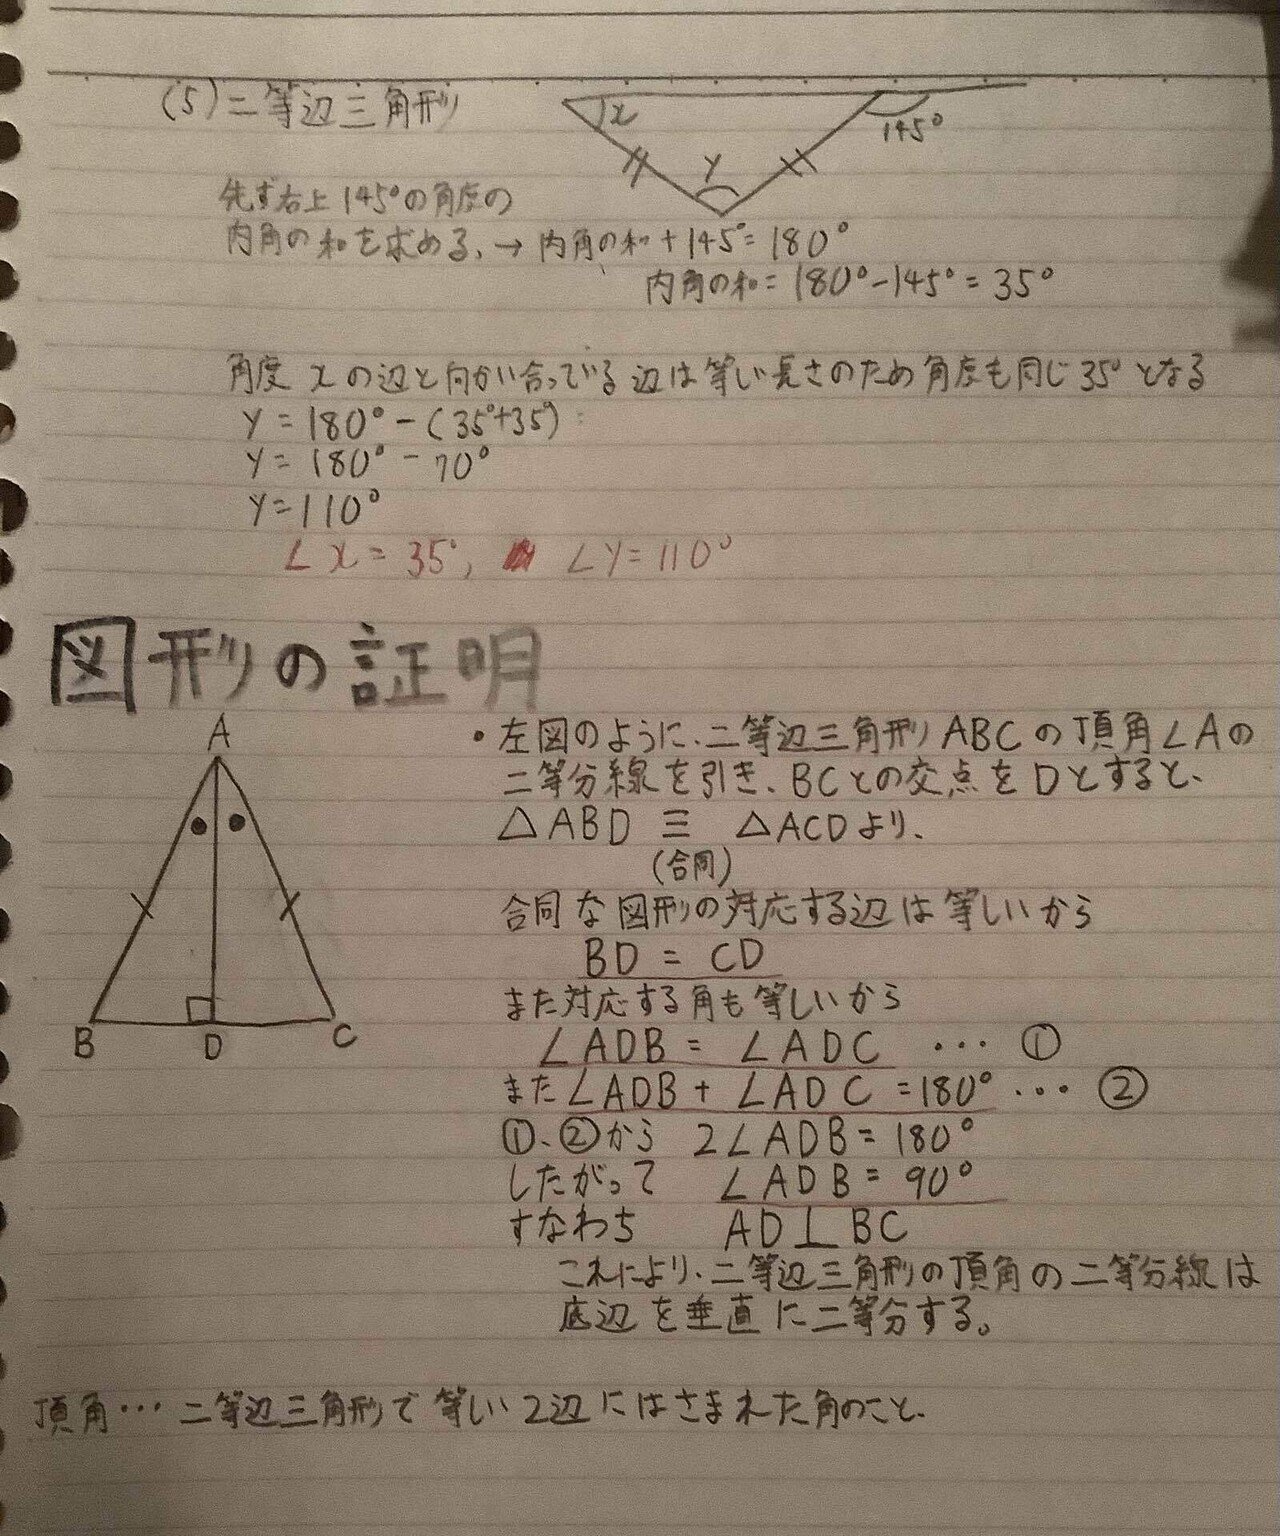 (5)二等辺三角形
x
y
145°
先ず右上145°の角度の
内角の和を求める、→ 内角の和+145°=180°
内角の和=180°-145°=35°
角度 xの辺と向かい合っている辺は等しい長さのため角度も同じ35°となる
y=180°-(35°+35°)
y=180°-70°
y=110°
∠x=35°, ∠y=110°
図形の証明
A
B
D
C
・左図のように、二等辺三角形ABCの頂角∠Aの
二等分線を引き、BCとの交点をDとすると、
△ABD ≡ △ACDより、
(合同)
合同な図形の対応する辺は等しいから
BD = CD
また対応する角も等しいから
∠ADB = ∠ADC … ①
また∠ADB + ∠ADC =180° … ②
①、②から 2∠ADB=180°
したがって ∠ADB=90°
すなわち AD⊥BC
これにより、二等辺三角形の頂角の二等分線は
底辺を垂直に二等分する。
頂角…二等辺三角形で等しい2辺にはさまれた角のこと、